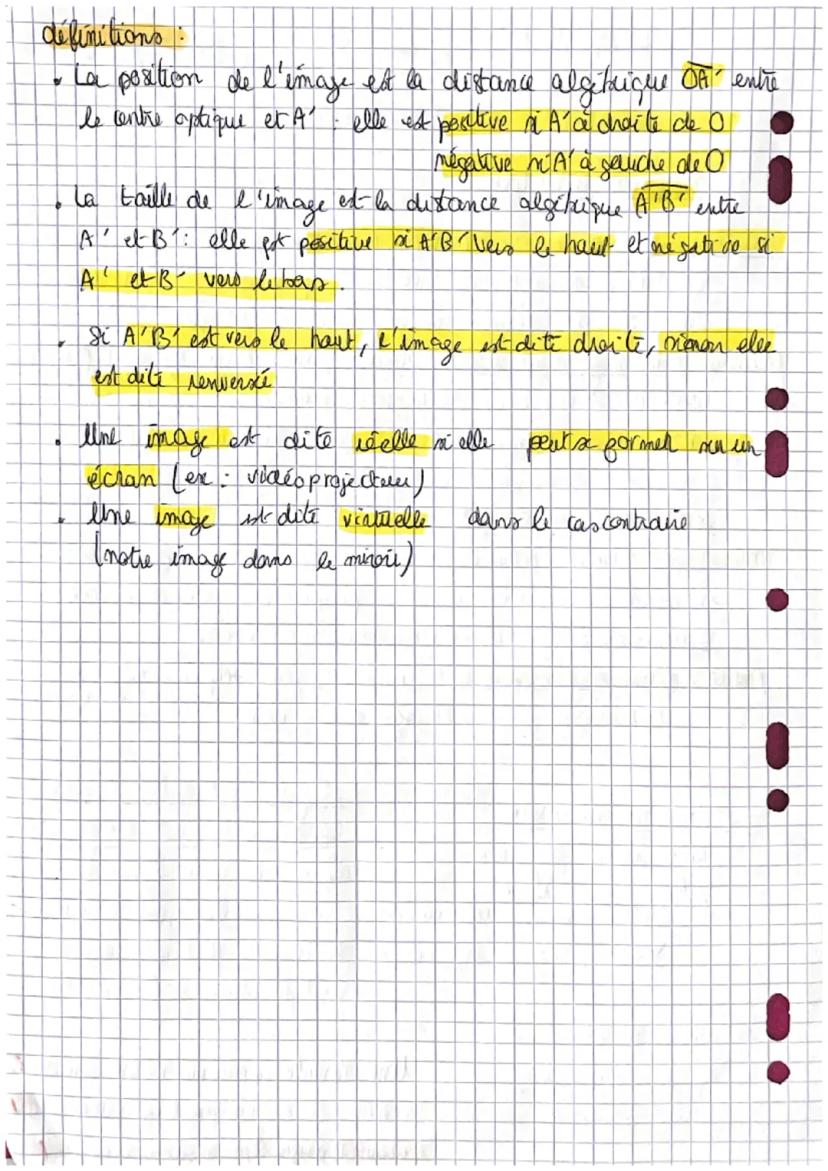 définitions :
• La position de l'image est la distance algébrique OA' entre
le centre optique et A' : elle est positive si A' à droite de O
négative si A' à gauche de O
• La taille de l'image est la distance algébrique A'B' entre
A' et B' : elle est positive si A'B' vers le haut et négative si
A' et B' vers le bas.
• Si A'B' est vers le haut, l'image est dite droite, sinon elle
est dite renversé
• Une image est dite réelle si elle peut se former sur un
écran (ex : vidéoprojecteur)
• Une image est dite virtuelle dans le cas contraire
(notre image dans le miroir)